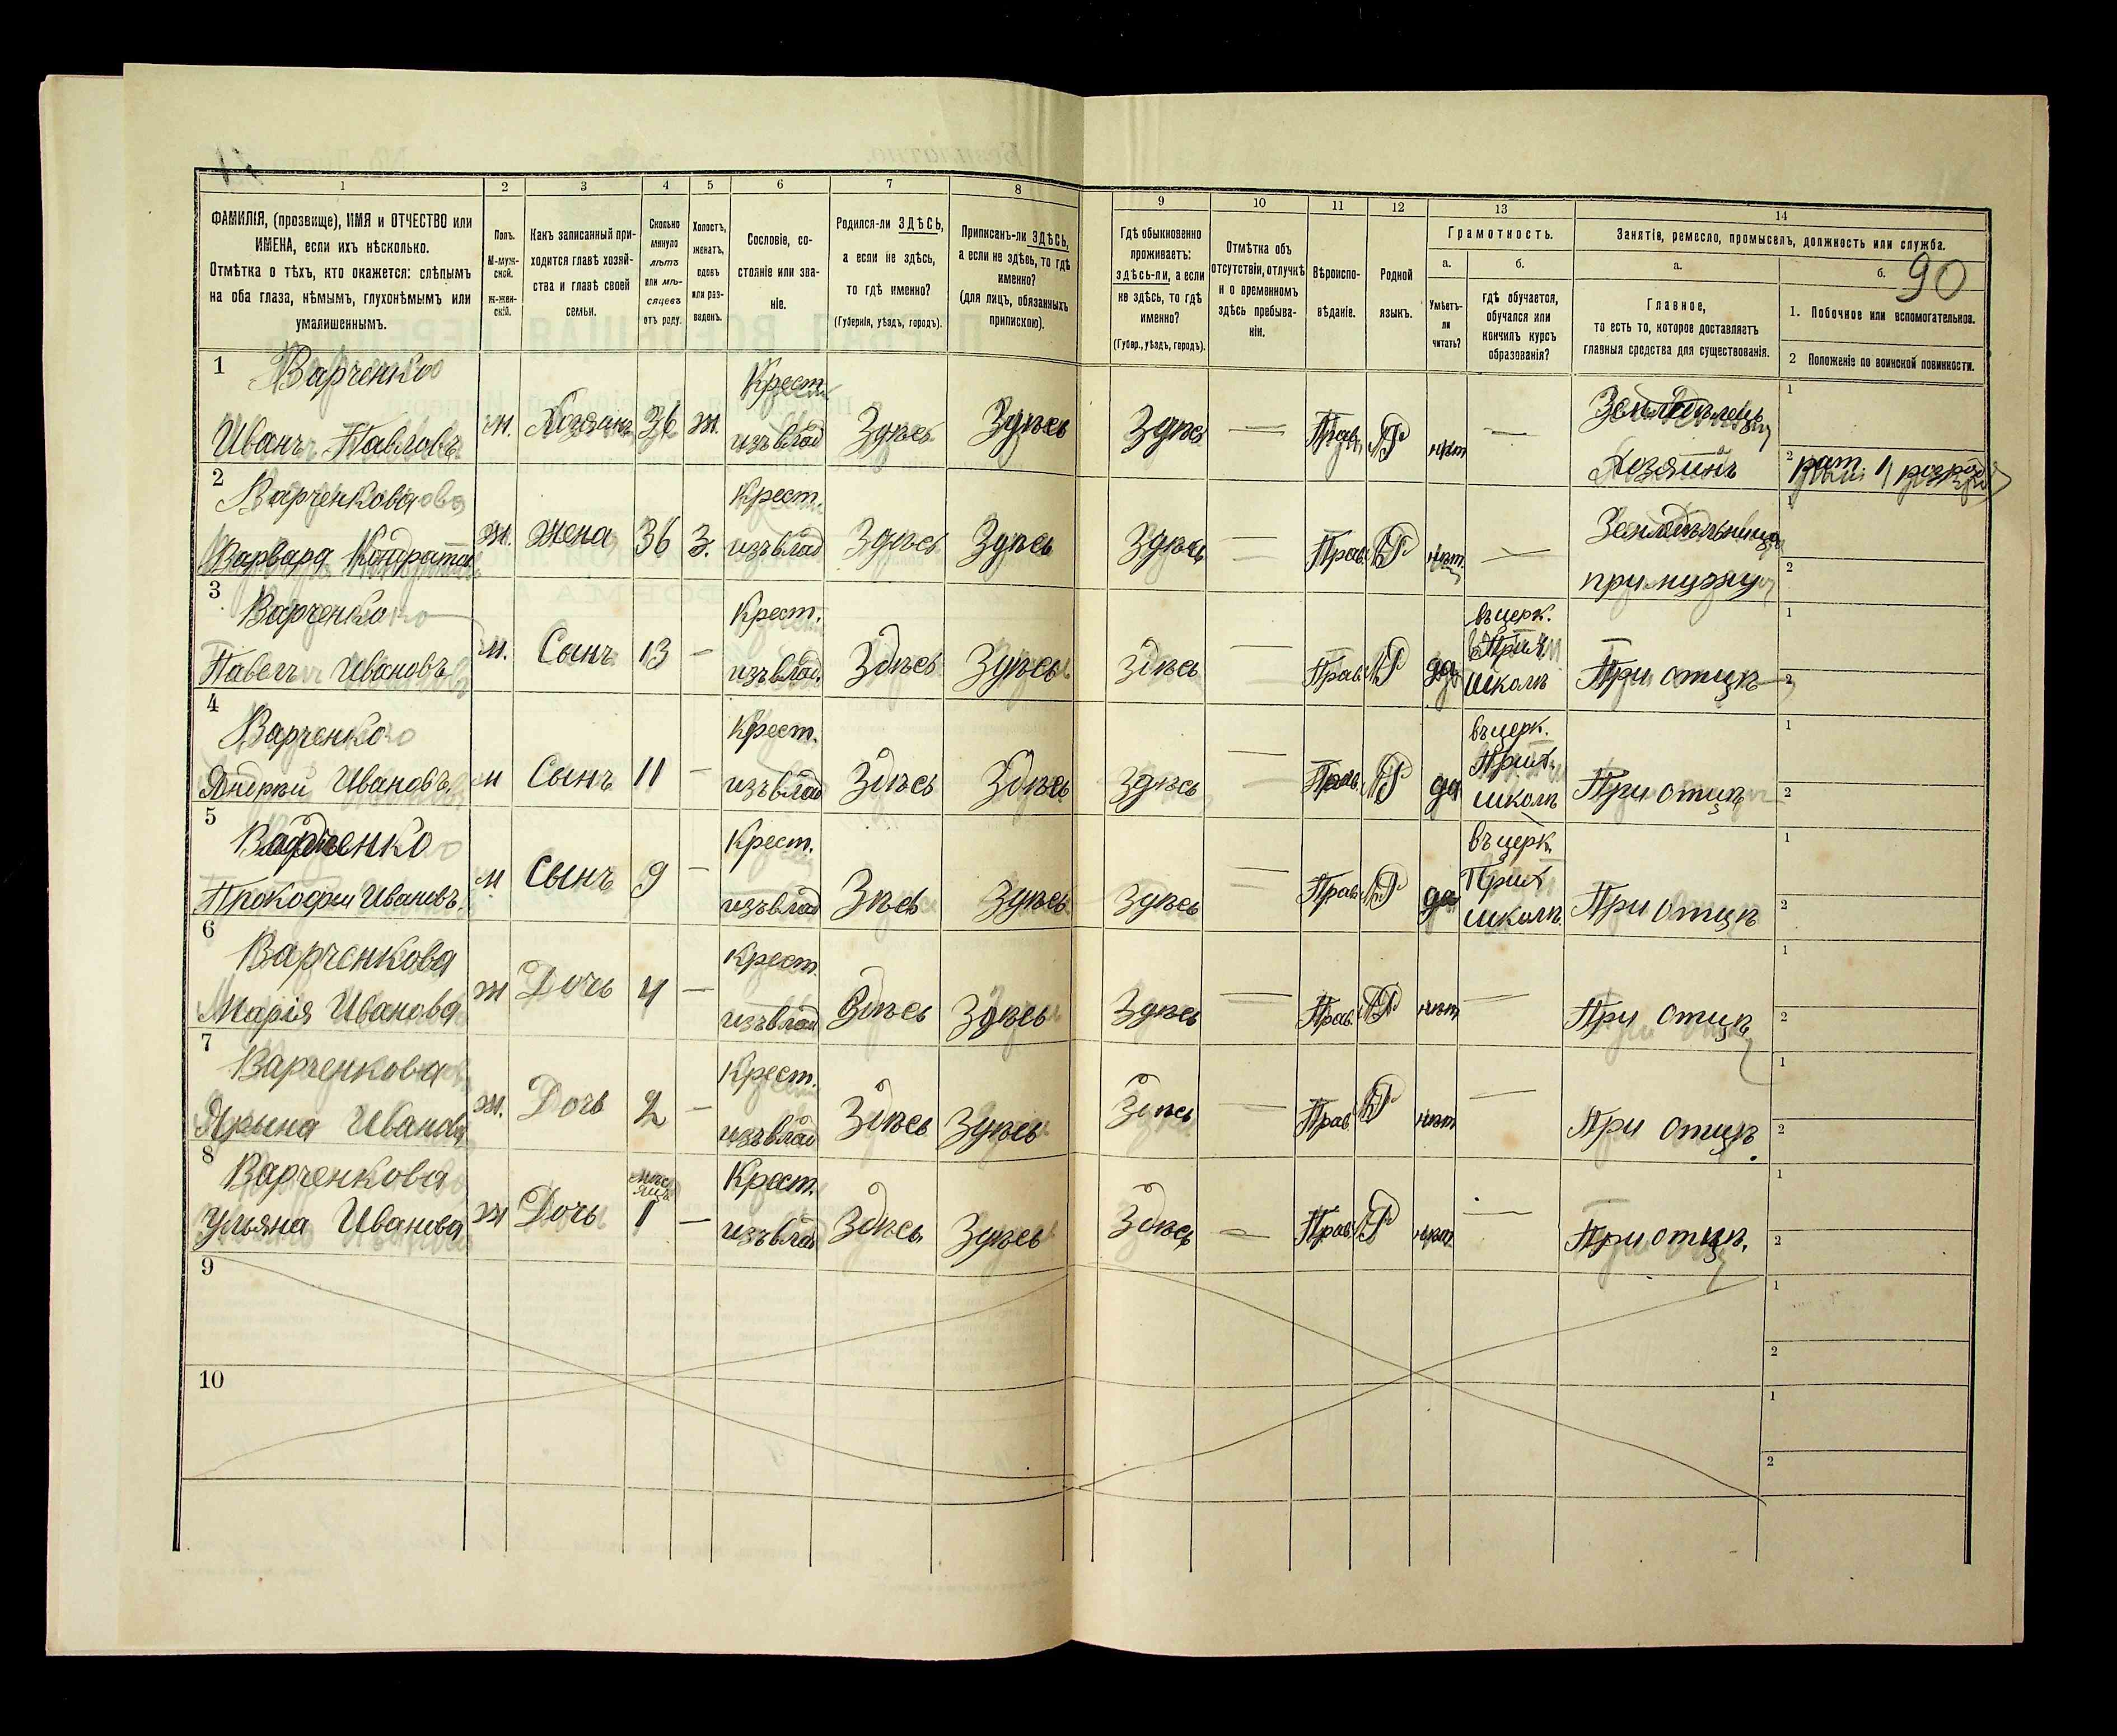 1 2 3 4 5 6 7 8 9 10 11 12 13 14
ФАМИЛІЯ, (прозвище), ИМЯ и ОТЧЕСТВО или
ИМЕНА, если ихъ нѣсколько.
Отмѣтка о тѣхъ, кто окажется: слѣпымъ
на оба глаза, нѣмымъ, глухонѣмымъ или
умалишеннымъ.
Полъ.
М-муж-
ской.
ж-жен-
скій.
Какъ записанный при-
ходится главѣ хозяй-
ства и главѣ своей
семьи.
Сколько
минуло
лѣтъ
или мѣ-
сяцевъ
отъ роду.
Холостъ,
женатъ,
вдовъ
или раз-
веденъ.
Сословіе, со-
стояніе или зва-
ніе.
Родился-ли ЗДѢСЬ,
а если не здѣсь,
то гдѣ именно?
(Губернія, уѣздъ, городъ).
Приписанъ-ли ЗДѢСЬ,
а если не здѣсь, то гдѣ
именно?
(для лицъ, обязанныхъ
припискою).
Гдѣ обыкновенно
проживаетъ:
здѣсь-ли, а если
не здѣсь, то гдѣ
именно?
(Губер., уѣздъ, городъ).
Отмѣтка объ
отсутствіи, отлучкѣ
и о временномъ
здѣсь пребыва-
ніи.
Вѣроиспо-
вѣданіе.
Родной
языкъ.
Грамотность.
а.
Умѣетъ-
ли
читать?
б.
гдѣ обучается,
обучался или
кончилъ курсъ
образованія?
Занятіе, ремесло, промыселъ, должность или служба.
а.
Главное,
то есть то, которое доставляетъ
главныя средства для существованія.
б.
90
1. Побочное или вспомогательное.
2 Положеніе по воинской повинности.
1 Варченко Крест. Земледѣлецъ 1
Иванъ Павловъ м. Хозяинъ 36 ж. изъ влад Здѣсь Здѣсь Здѣсь — Прав. нѣт —
Хозяинъ 2 рат. 1 розряд
2 Варченкова Крест. Земледѣльница 1
Варвара Кондратова ж. жена 36 З. изъ влад Здѣсь Здѣсь Здѣсь — Прав. нѣт. —
при мужу 2
3 Варченко Крест. въ церк. 1
Павелъ Ивановъ м. Сынъ 13 — изъ влад. Здѣсь Здѣсь Здѣсь — Прав. да Прих школѣ При отцѣ 2
4 Варченко Крест. въ церк. 1
Андрѣй Ивановъ м Сынъ 11 — изъ влад Здѣсь Здѣсь Здѣсь — Прав. да Прих. школѣ При отцѣ 2
5 Варченко Крест. въ церк. 1
Прокофий Ивановъ. м Сынъ 9 — изъ влад Зѣсь Здѣсь Здѣсь — Прав. да Прих школѣ. При отцѣ 2
6 Варченкова Крест. 1
Марія Иванова ж Дочь 4 — изъ влад Здѣсь Здѣсь Здѣсь — Прав. нѣт — При отцѣ 2
7 Варченкова Крест. 1
Ярына Иванова ж. Дочь 2 — изъ влад Здѣсь Здѣсь Здѣсь — Прав нѣт — При отцѣ. 2
8 Варченкова мѣс яцъ Крест. 1
Ульяна Иванова ж Дочь 1 — изъ влад Здѣсь Здѣсь Здѣсь — Прав. нѣт — При отцѣ. 2
9 1
2
10 1
2